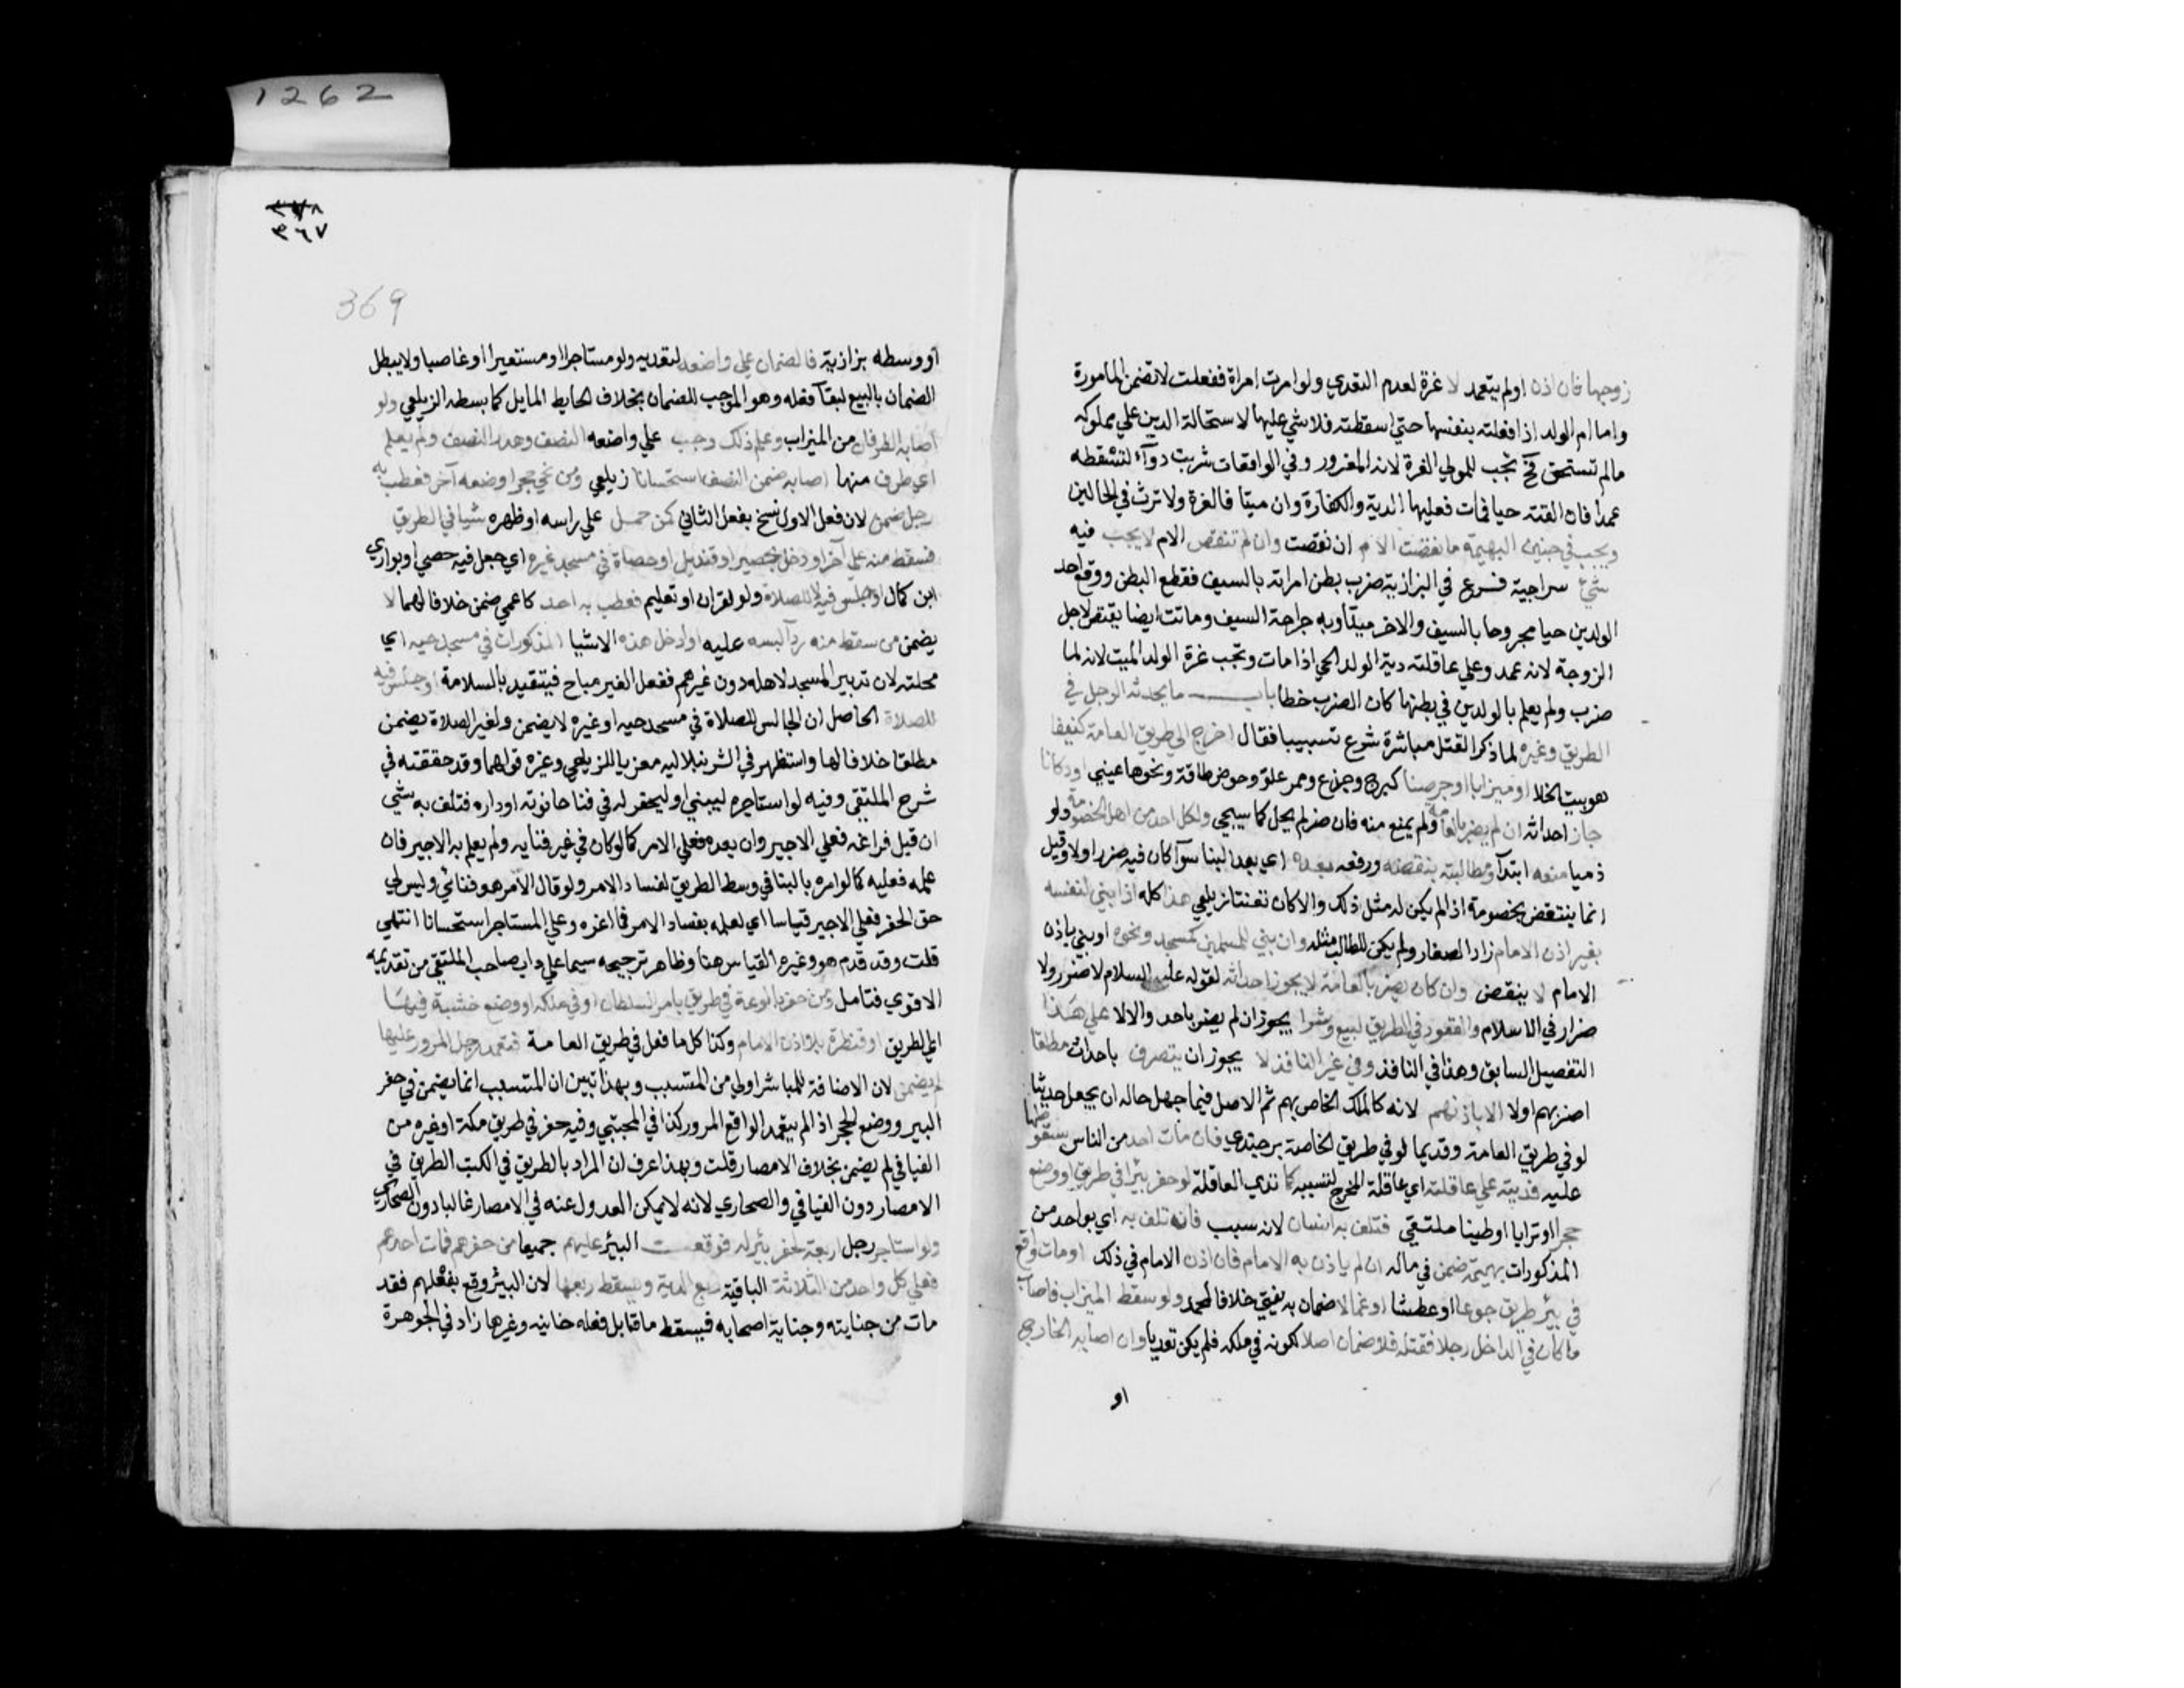 زوجها فان اذن اولم يتعمد لا غرة لعدم التعدي ولو امرت امراة ففعلت لا تضمن المامورة
واما ام الولد اذا فعلته بنفسها حتي اسقطته فلا شي عليها لاستحالة الدين علي مملوكه
مالم تستحق فح تجب للمولي الغرة لانه المغرور وفي الواقعات شربت دوآء لتسقطه
عمدا فان القته حيا فمات فعليها الدية والكفارة وان ميتا فالغرة ولا ترث في الحالين
ويجب في جنين البهيمة ما نقصت الام ان نقصت وان لم تنقص الام لا يجب فيه
شئ سراجية فرع في البزازية ضرب بطن امراته بالسيف فقطع البطن ووقع احد
الولدين حيا مجروحا بالسيف والاخر ميتا وبه جراحة السيف وماتت ايضا يقتص لاجل
الزوجة لانه عمد وعلي عاقلته دية الولد الحي اذا مات وتجب غرة الولد الميت لانه لما
ضرب ولم يعلم بالولدين في بطنها كان الضرب خطا باب ما يحدثه الرجل في
الطريق وغيره لما ذكر القتل مباشرة شرع تسبيبا فقال اخرج الي طريق العامة كنيفا
هو بيت الخلا او ميزابا او جرصنا كبرج وجذع وممر علو وحوض طاقة ونحوها عيني او دكانا
جاز احداثه ان لم يضر بالعامة ولم يمنع منه فان ضر لم يحل كما سيجي ولكل احد من اهل الخصومة ولو
ذميا منعه ابتدآ ومطالبته بنقضه ورفعه بعده اي بعد البنا سوآ كان فيه ضرر اولا وقيل
انما ينتقض بخصومة اذا لم يكن له مثل ذلك والا كان تعنتا زيلعي هذا كله اذا بني لنفسه
بغير اذن الامام زاد الصفار ولم يكن للطالب مثله وان بني للمسلمين كمسجد ونحوه او بني باذن
الامام لا ينقض وان كان يضر بالعامة لا يجوز احداثه لقوله عليه السلام لا ضرر ولا
ضرار في الاسلام والقعود في الطريق لبيع وشرا يجوز ان لم يضر باحد والا لا علي هذا
التفصيل السابق وهذا في النافذ وفي غير النافذ لا يجوز ان يتصرف باحداث مطلقا
اضر بهم اولا الا باذنهم لانه كالملك الخاص بهم ثم الاصل فيما جهل حاله ان يجعل حديثا
لو في طريق العامة وقديما لو في طريق الخاصة برجندي فان مات احد من الناس بسقوطها
عليه فديته علي عاقلته اي عاقلة المخرج لتسببه كما تدي العاقلة لو حفر بئرا في طريق او وضع
حجرا او ترابا او طينا ملتقي فتلف به انسان لانه سبب فان تلف به اي بواحد من
المذكورات بهيمة ضمن في ماله ان لم ياذن به الامام فان اذن الامام في ذلك او مات واقع
في بئر طريق جوعا او عطشا او غما لا ضمان به يفتي خلافا لمحمد ولو سقط الميزاب فاصاب
ما كان في الداخل رجلا فقتله فلا ضمان اصلا لكونه في ملكه فلم يكن تعديا وان اصابه الخارجي
او
٣٦٧
369
1262
او وسطه بزازية فالضمان علي واضعه لتعديه ولو مستاجرا او مستعيرا او غاصبا ولا يبطل
الضمان بالبيع لبقآ فعله وهو الموجب للضمان بخلاف الحايط المايل كما بسطه الزيلعي ولو
اصابه الطرفان من الميزاب وعلم ذلك وجب علي واضعه النصف وهدر النصف ولم يعلم
اي طرف منها اصابه ضمن النصف استحسانا زيلعي ومن نحي حجرا وضعه آخر فعطب به
رجل ضمن لان فعل الاول نسخ بفعل الثاني كمن حمل علي راسه او ظهره شيا في الطريق
فسقط منه علي آخر او دخل بحصير او قنديل او حصاة في مسجد غيره اي جعل فيه حصي او بواري
ابن كمال او جلس فيه لا للصلاة ولو لقران او تعليم فعطب به احد كاعمي ضمن خلافا لهما لا
يضمن من سقط منه ردآ لبسه عليه او ادخل هذه الاشيا المذكورات في مسجد حيه اي
محلته لان تدبير المسجد لاهله دون غيرهم ففعل الغير مباح فيتقيد بالسلامة او جلس فيه
للصلاة الحاصل ان الجالس للصلاة في مسجد حيه او غيره لا يضمن ولغير الصلاة يضمن
مطلقا خلافا لهما واستظهر في الشرنبلالية معزيا للزيلعي وغيره قولهما وقد حققته في
شرح الملتقي وفيه لو استاجره ليبني او ليحفر له في فنا حانوته او داره فتلف به شي
ان قبل فراغه فعلي الاجير وان بعده فعلي الامر كما لو كان في غير فنايه ولم يعلم به الاجير فان
علمه فعليه كما لو امره بالبنا في وسط الطريق لفساد الامر ولو قال الآمر هو فنائي وليس لي
حق الحفر فعلي الاجير قياسا اي لعلمه بفساد الامر فما غره وعلي المستاجر استحسانا انتهي
قلت وقد قدم هو وغيره القياس هنا وظاهر ترجيحه سيما علي داب صاحب الملتقي من تقديمه
الاقوي فتامل ومن حفر بالوعة في طريق بامر السلطان او في ملكه او وضع خشبة فيها
اي الطريق او قنطرة بلا اذن الامام وكذا كل ما فعل في طريق العامة فتعمد رجل المرور عليها
لم يضمن لان الاضافة للمباشر اولي من المتسبب وبهذا تبين ان المتسبب انما يضمن في حفر
البير ووضع الحجر اذا لم يتعمد الواقع المرور كذا في المجتبي وفيه حفر في طريق مكة او غيره من
الفيافي لم يضمن بخلاف الامصار قلت وبهذا عرف ان المراد بالطريق في الكتب الطريق في
الامصار دون الفيافي والصحاري لانه لا يمكن العدول عنه في الامصار غالبا دون الصحاري
ولو استاجر رجل اربعة لحفر بئر له فوقعت البئر عليهم جميعا من حفرهم فمات احدهم
فعلي كل واحد من الثلاثة الباقية ربع الدية ويسقط ربعها لان البئر وقع بفعلهم فقد
مات من جنايته وجناية اصحابه فيسقط ما قابل فعله خانيه وغيرها زاد في الجوهرة